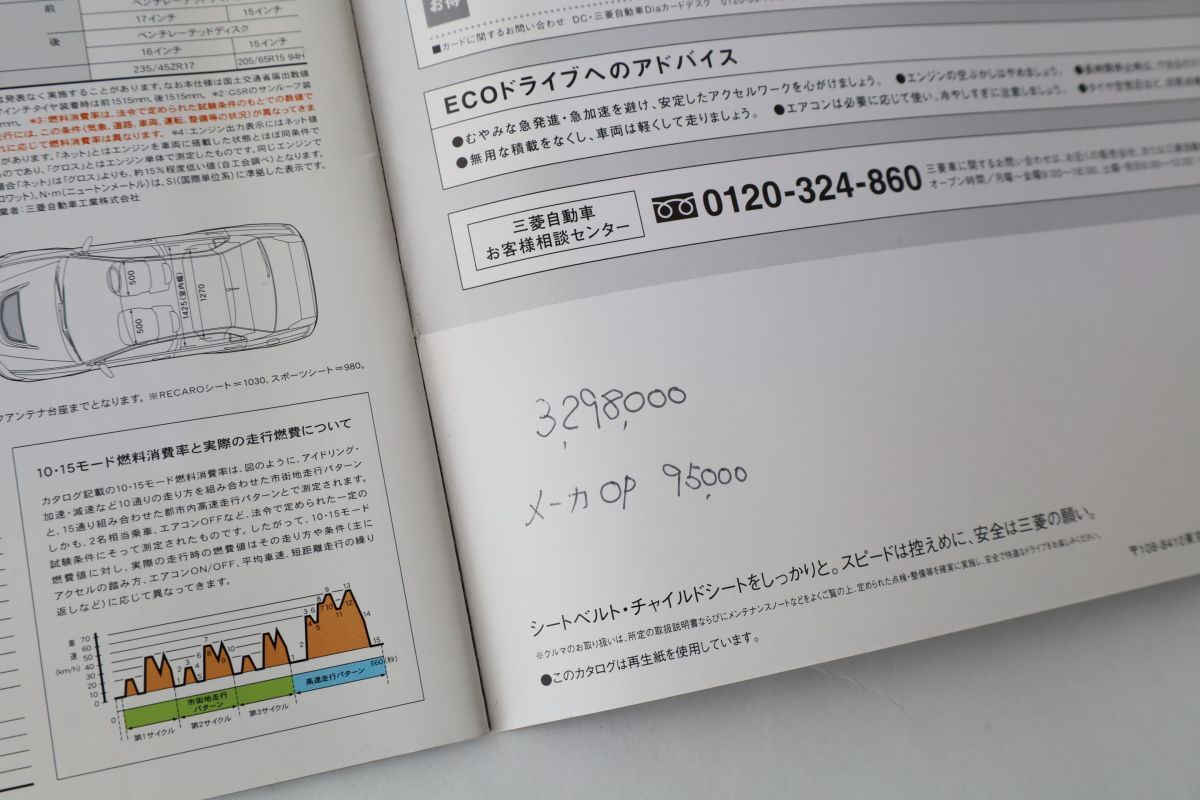 前
17インチ
15インチ
後
ベンチレーテッドディスク
16インチ
15インチ
235/45ZR17
205/65R15 94H
は発表なく実施することがあります。なお本仕様は国土交通省届出数値
インチタイヤ装着時は前1515mm、後1515mm。 ※2:GSRのサンルーフ装
mm。 ※3:燃料消費率は、法令で定められた試験条件のもとでの数値で
走行には、この条件(気象、道路、車両、運転、整備等の状況)が異なってきま
れに応じて燃料消費率は異なります。 ※4:エンジン出力表示にはネット値
があります。「ネット」とはエンジンを車両に搭載した状態とほぼ同条件で
ものであり、「グロス」とはエンジン単体で測定したものです。同じエンジンで
場合「ネット」は「グロス」よりも、約15%程度低い値(自工会調べ)となります。
ロワット)、N・m(ニュートンメートル)は、SI(国際単位系)に準拠した表示です。
業者:三菱自動車工業株式会社
500
500
1425(室内幅)
1270
アンテナ台座までとなります。 ※RECAROシート=1030、スポーツシート=980。
10・15モード燃料消費率と実際の走行燃費について
カタログ記載の10・15モード燃料消費率は、図のように、アイドリング・
加速・減速など10通りの走り方を組み合わせた市街地走行パターン
と、15通り組み合わせた都市内高速走行パターンとで測定されます。
しかも、2名相当乗車、エアコンOFFなど、法令で定められた一定の
試験条件にそって測定されたものです。したがって、10・15モード
燃費値に対し、実際の走行時の燃費値はその走り方や条件(主に
アクセルの踏み方、エアコンON/OFF、平均車速、短距離走行の繰り
返しなど)に応じて異なってきます。
車速(km/h)
70
60
50
40
30
20
10
0
0
1 2 3 4 5 6 7 8 9 10
1 2 3 4 5 6 7 8 9 10 11 12 13 14 15
660(秒)
市街地走行
パターン
高速走行パターン
第1サイクル
第2サイクル
第3サイクル
お得
■カードに関するお問い合わせ DC・三菱自動車Diaカードデスク
ECOドライブへのアドバイス
●むやみな急発進・急加速を避け、安定したアクセルワークを心がけましょう。 ●エンジンの空ぶかしはやめましょう。
●無用な積載をなくし、車両は軽くして走りましょう。 ●エアコンは必要に応じて使い、冷やしすぎに注意しましょう。
三菱自動車
お客様相談センター
0120-324-860
三菱車に関するお問い合わせは、お近くの販売会社、または三菱自動車
オープン時間/月曜〜金曜9:00〜18:00、土曜・祝日
3,298,000
メーカOP 95,000
シートベルト・チャイルドシートをしっかりと。スピードは控えめに、安全は三菱の願い。
※クルマのお取り扱いは、所定の取扱説明書ならびにメンテナンスノートなどをよくご覧の上、定められた点検・整備等を確実に実施し、安全で快適なドライブをお楽しみください。
〒108-8410
●このカタログは再生紙を使用しています。